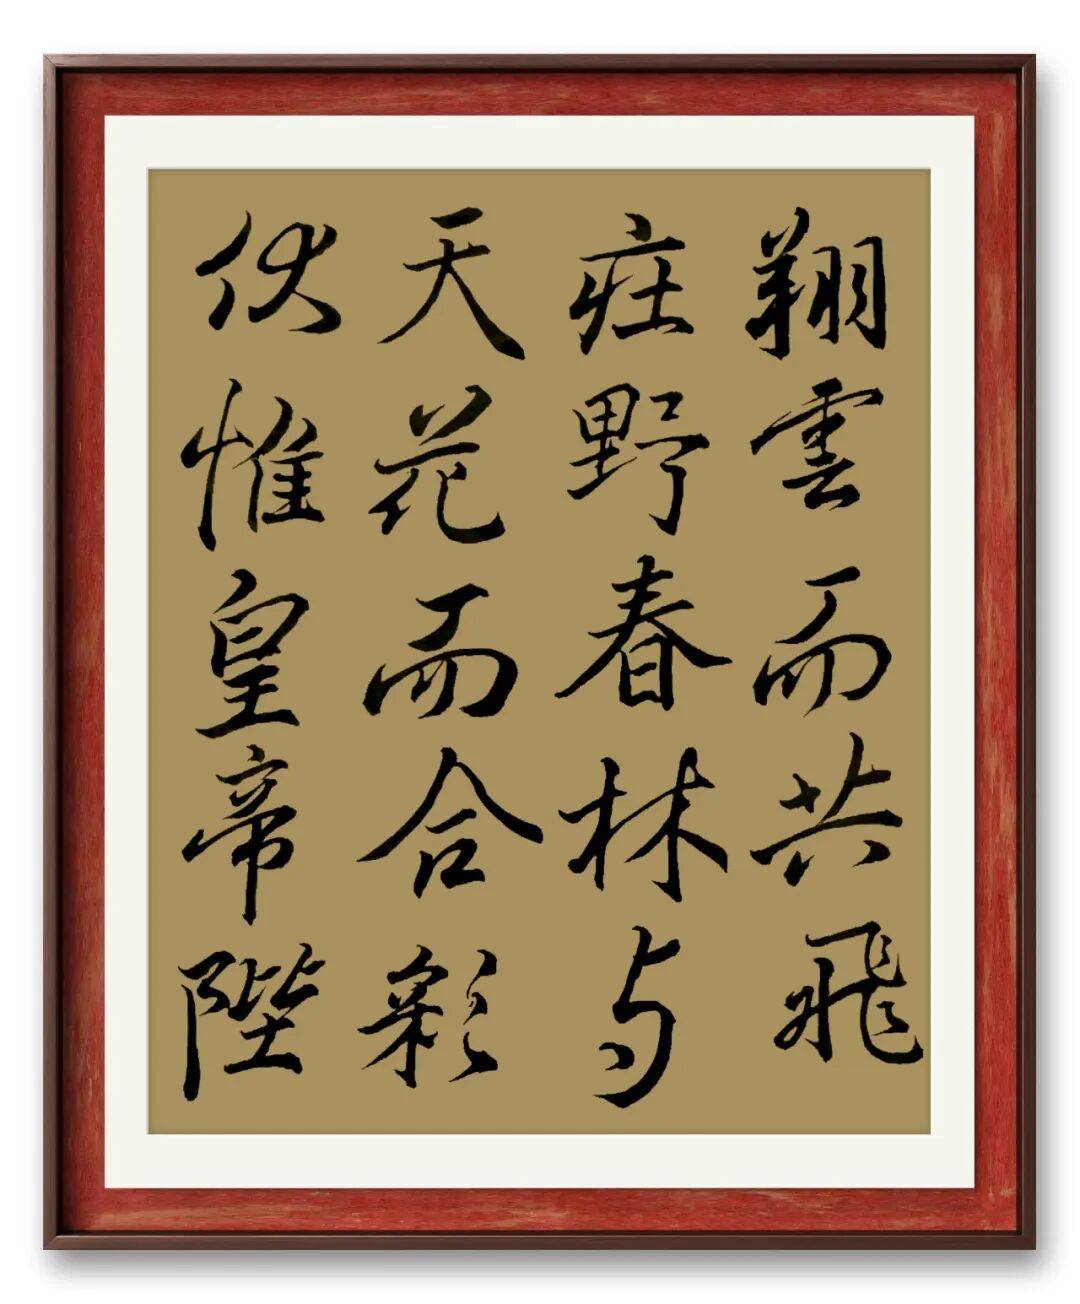 翔雲而共飛
莊野春林与
天花而合彩
伏惟皇帝陛